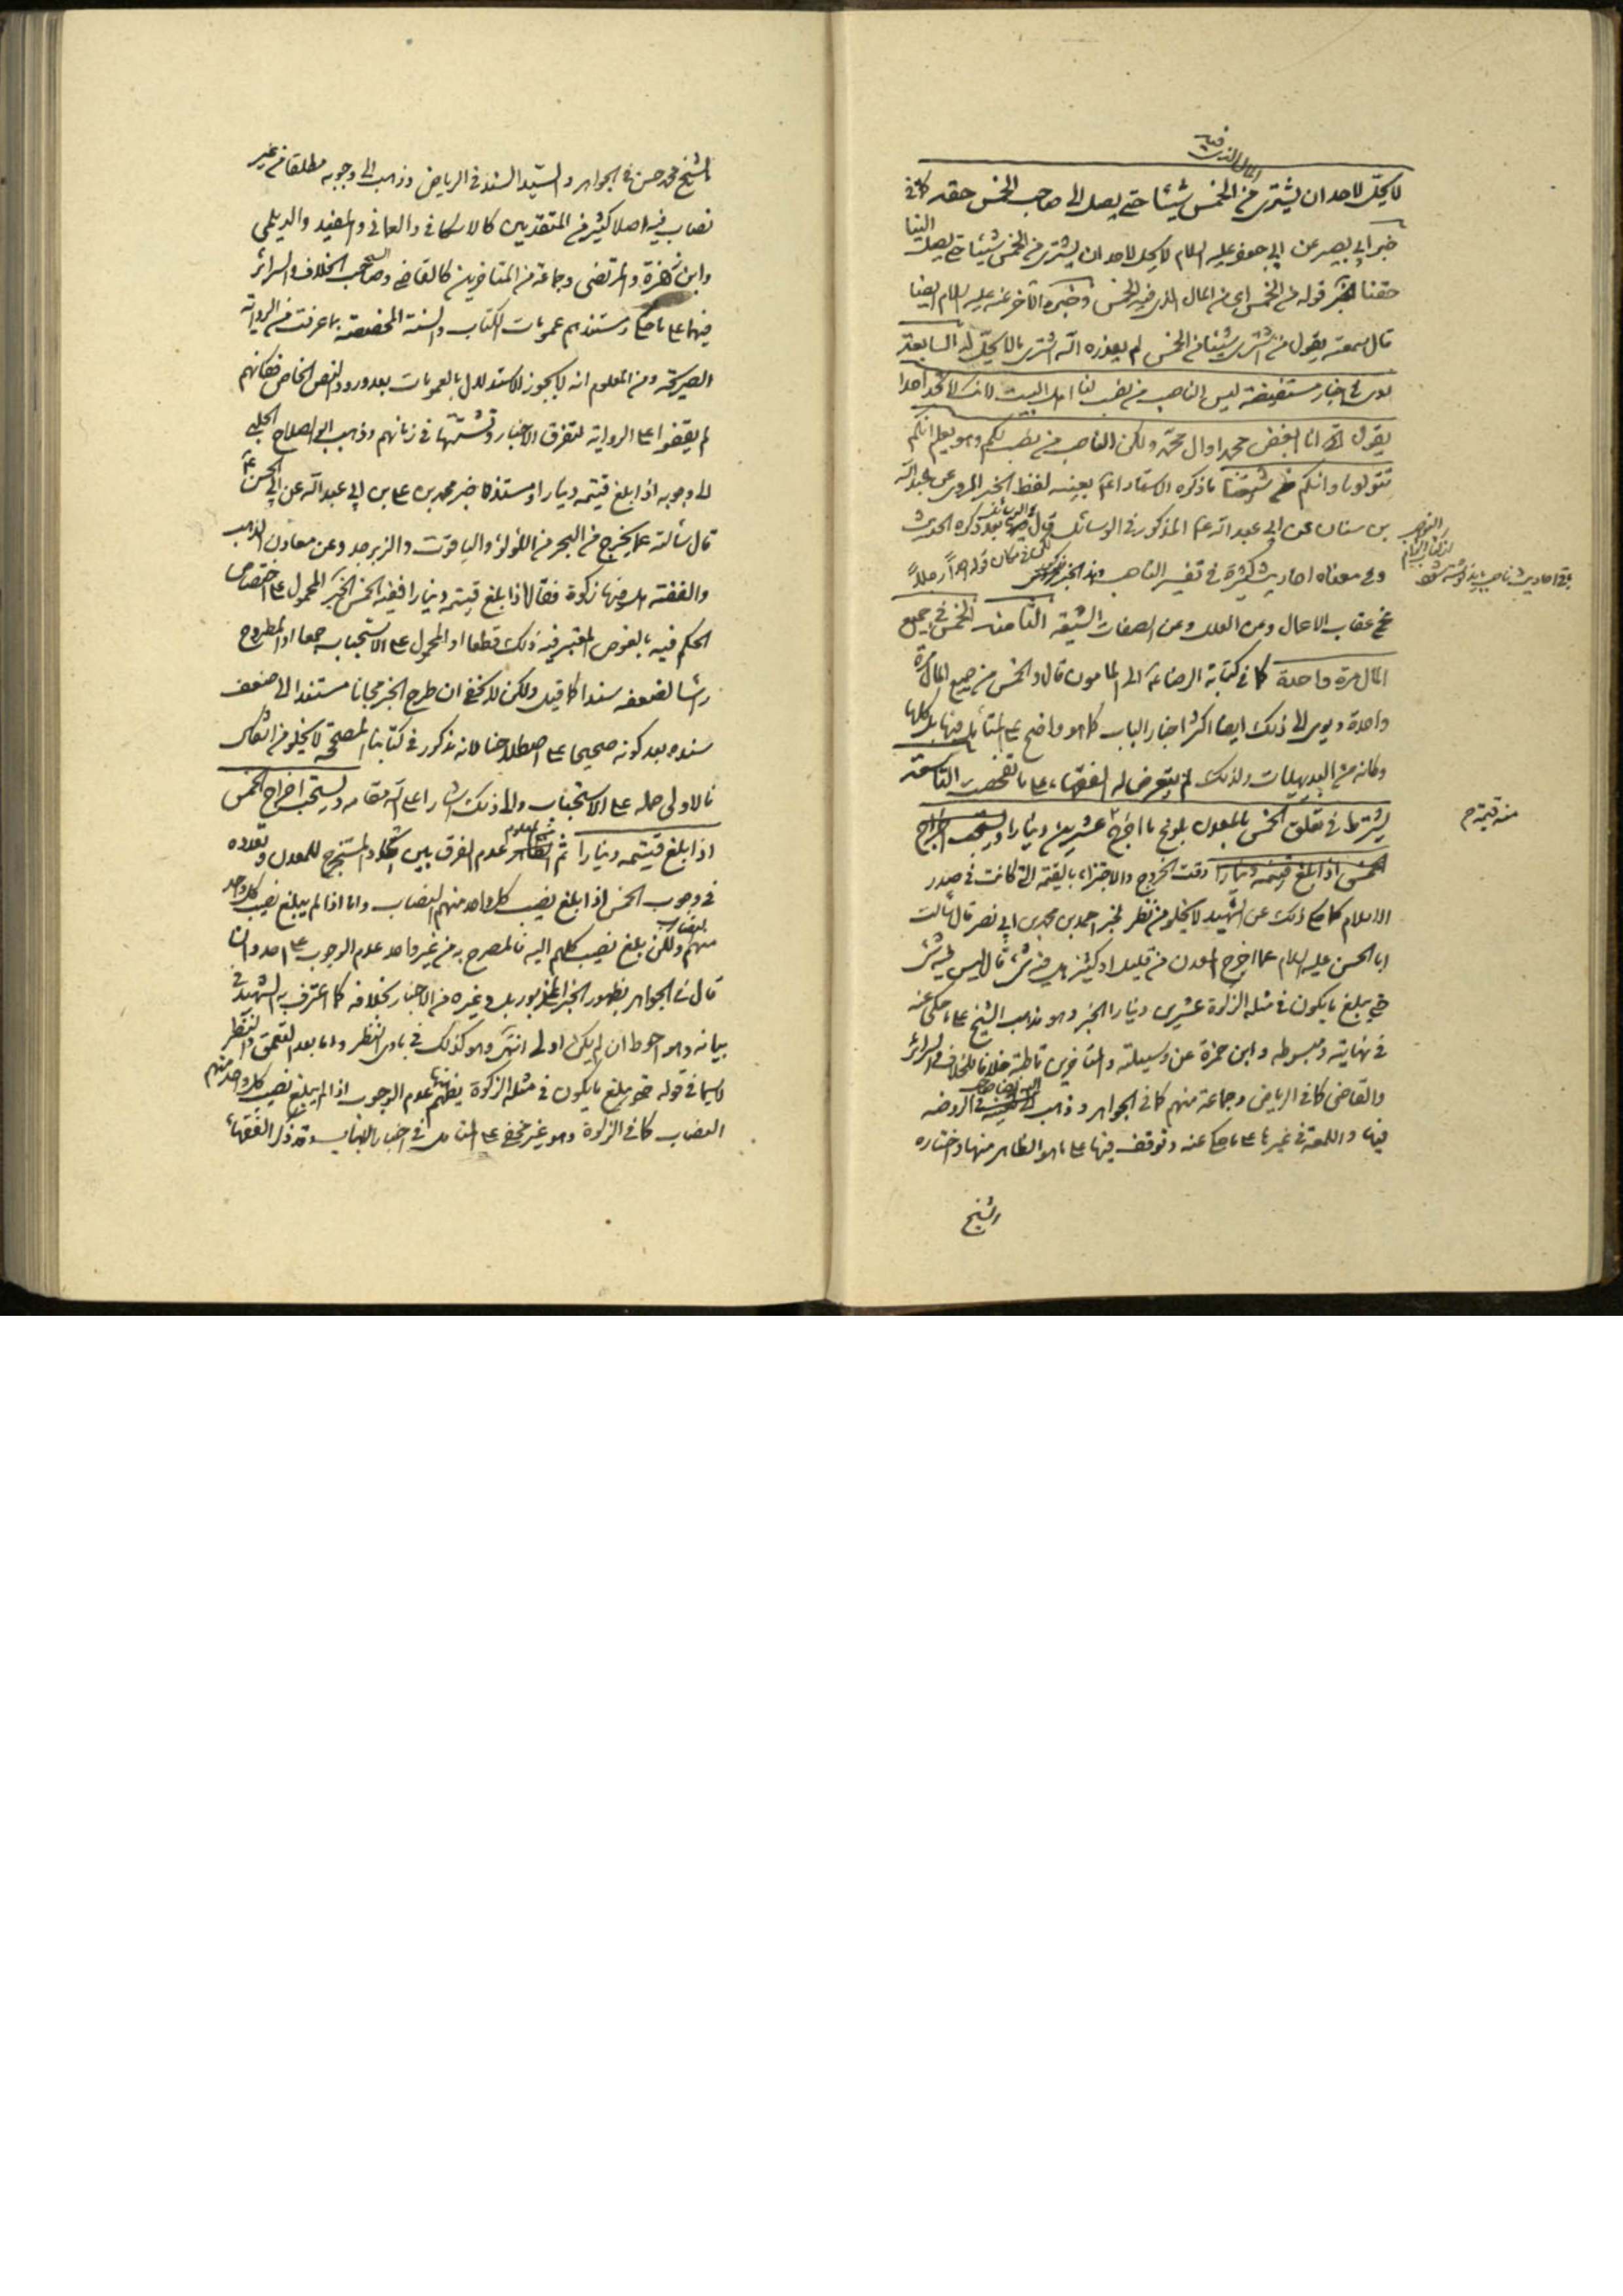 المال الذي فيه
لا يحلّ لاحد ان يشترى من الخمس شيئا حتى يصل الى صاحب الخمس حقه كما في
خبر ابي بصير عن ابي جعفر عليه السلام لا يحل لاحد ان يشترى من الخمس شيئا حتى يصل الينا
حقنا قوله من الخمس اى من المال الذى فيه الخمس وخبره الآخر عنه عليه السلام ايضا
قال سمعته يقول من اشترى شيئا من الخمس لم يعذره الله اشترى ما لا يحلّ له السابعة
في اخبار مستفيضة ليس الناصب من نصب لنا اهل البيت لانك لا تجد احدا
يقول انا ابغض محمدا وال محمد ولكن الناصب من نصب لكم وهو يعلم انكم
تتولونا وانكم من شيعتنا ما ذكره الاستاد بعينه لفظ الخبر المروى عن عبد الله
بن سنان عن ابي عبد الله ع المذكور في الوسائل قال بعد ذكره الحديث
وفي معناه احاديث كثيرة في تفسير الناصب
عن عقاب الاعمال ومن العلل وعن الصفات الشيعة الثامنة الخمس في جميع
المال مرة واحدة كما في كتابة الرضا ع الى المامون قال والخمس من جميع المال مرة
واحدة ويومى الى ذلك ايضا اكثر اخبار الباب كما هو واضح على المتأمل فيها بل كلها
وكانه من البديهيات ولذلك لم يتعرض له الفقهاء على ما تفحصت التاسعة
يشترط في تعلق الخمس بالمعدن بلوغ ما اخرج عشرين دينارا ويستحب اخراج
الخمس اذا بلغ قيمته دينارا وقت الخروج والاجتزاء بالقيمة التي كانت في صدر
الاسلام كما حكى ذلك عن الشهيد لا يخلو من نظر لخبر احمد بن محمد بن ابي نصر قال سألت
ابا الحسن عليه السلام عما اخرج المعدن من قليل او كثير هل فيه شئ قال ليس فيه شئ
حتى يبلغ ما يكون في مثله الزكوة عشرين دينارا الخبر وهو مذهب الشيخ على ما حكى عنه
في نهايته ومبسوطه وابن حمزة عن وسيلته والمتاخرين قاطبة خلافا للخلاف والسرائر
والقاضى كما في الرياض وجماعة منهم كما في الجواهر وذهب في الروضة
فيها واللمعة في غيرها على ما حكى عنه وتوقف فيها على ما هو الظاهر منها واختاره
الشيخ
الشيخ محمد حسن في الجواهر والسيّد السند في الرياض وذهب الى وجوبه مطلقا من غير
نصاب فيه اصلا كثير من المتقدمين كالاسكافي والعماني والمفيد والديلمى
وابن زهرة والمرتضى وجماعة من المتاخرين كالقاضى وصاحب الخلاف والسرائر
فيهما على ما حكى ومستندهم عمومات الكتاب والسنة المخصصة بما عرفت من الرواية
الصريحة ومن المعلوم انه لا يجوز الاستدلال بالعمومات بعد ورود النص الخاص فكانهم
لم يقفوا على الرواية لتفرق الاخبار وتشتتها في زمانهم وذهب ابو الصلاح الحلبي
الى وجوبه اذا بلغ قيمته دينارا ومستنده خبر محمد بن على بن ابي عبد الله عن ابي الحسن ع
قال سألته عما يخرج من البحر من اللؤلؤ والياقوت والزبرجد وعن معادن الذهب
والفضة هل فيها زكوة فقال اذا بلغ قيمته دينارا ففيه الخمس الخبر المحمول على اختصاص
الحكم فيه بالغوص المعتبر فيه ذلك قطعا او المحمول على الاستحباب جمعا او المطروح
رأسا لضعفه سندا كما قيل ولكن لا يخفى ان طرح الخبر مجانا مستندا الى ضعف
سنده بعد كونه صحيحا على اصطلاحنا لانه مذكور في كتابنا المصححة لا يخلو من اشكال
فالاولى حمله على الاستحباب والى ذلك اشار اعلى الله مقامه ويستحب اخراج الخمس
اذا بلغ قيمته دينارا ثم الظاهر عدم الفرق بين اتحاد المستخرج للمعدن وتعدده
في وجوب الخمس اذا بلغ نصيب كل واحد منهم النصاب واما اذا لم يبلغ نصيب كل واحد
منهم النصاب ولكن بلغ نصيب كلهم اليه فالمصرح به من غير واحد عدم الوجوب على احد وان
قال في الجواهر بظهور الخبر المزبور بل وغيره من الاخبار بخلافه كما اعترف به الشهيد في
بيانه وهو احوط ان لم يكن اولى انتهى وهو كذلك في بادى النظر واما بعد التعمق والنظر
لا سيما في قوله حتى يبلغ ما يكون في مثله الزكوة يظهر عدم الوجوب اذا لم يبلغ نصيب كل واحد منهم
النصاب كما في الزكوة وهو غير مخفى على المتأمل في اخبار الباب وقد ذكر الفقهاء